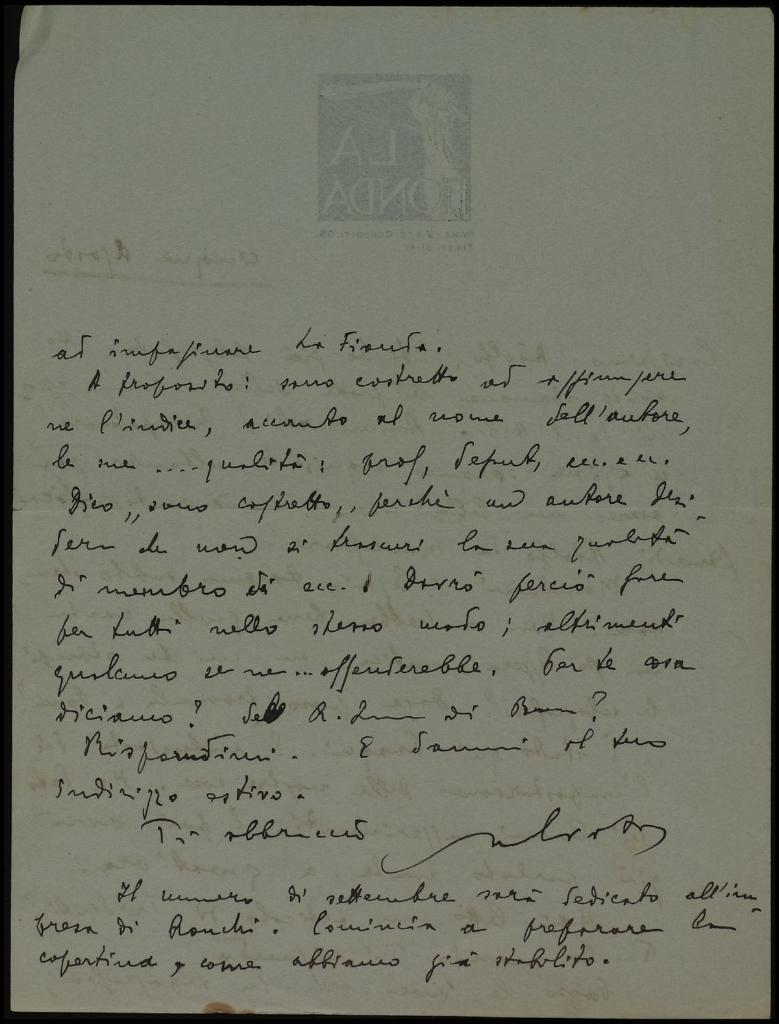 LA
FIONDA
Cinque Agosto
ad impaginare La Fionda.
A proposito: sono costretto ad aggiungere
ne l'indice, accanto al nome dell'autore,
le sue .... qualità: prof, deput, ecc. e ecc.
Dico „sono costretto„ perchè un autore desi-
dera che non si trascuri la sua qualità
di membro di ecc. Dovrò perciò fare
per tutti nello stesso modo; altrimenti
qualcuno se ne... offenderebbe. Per te cosa
diciamo? del R. di ?
Rispondimi. E dammi il tuo
indirizzo estivo.
Ti abbraccio
Il numero di settembre sarà dedicato all'im-
presa di Ronchi. Comincia a preparare la
copertina, come abbiamo già stabilito.